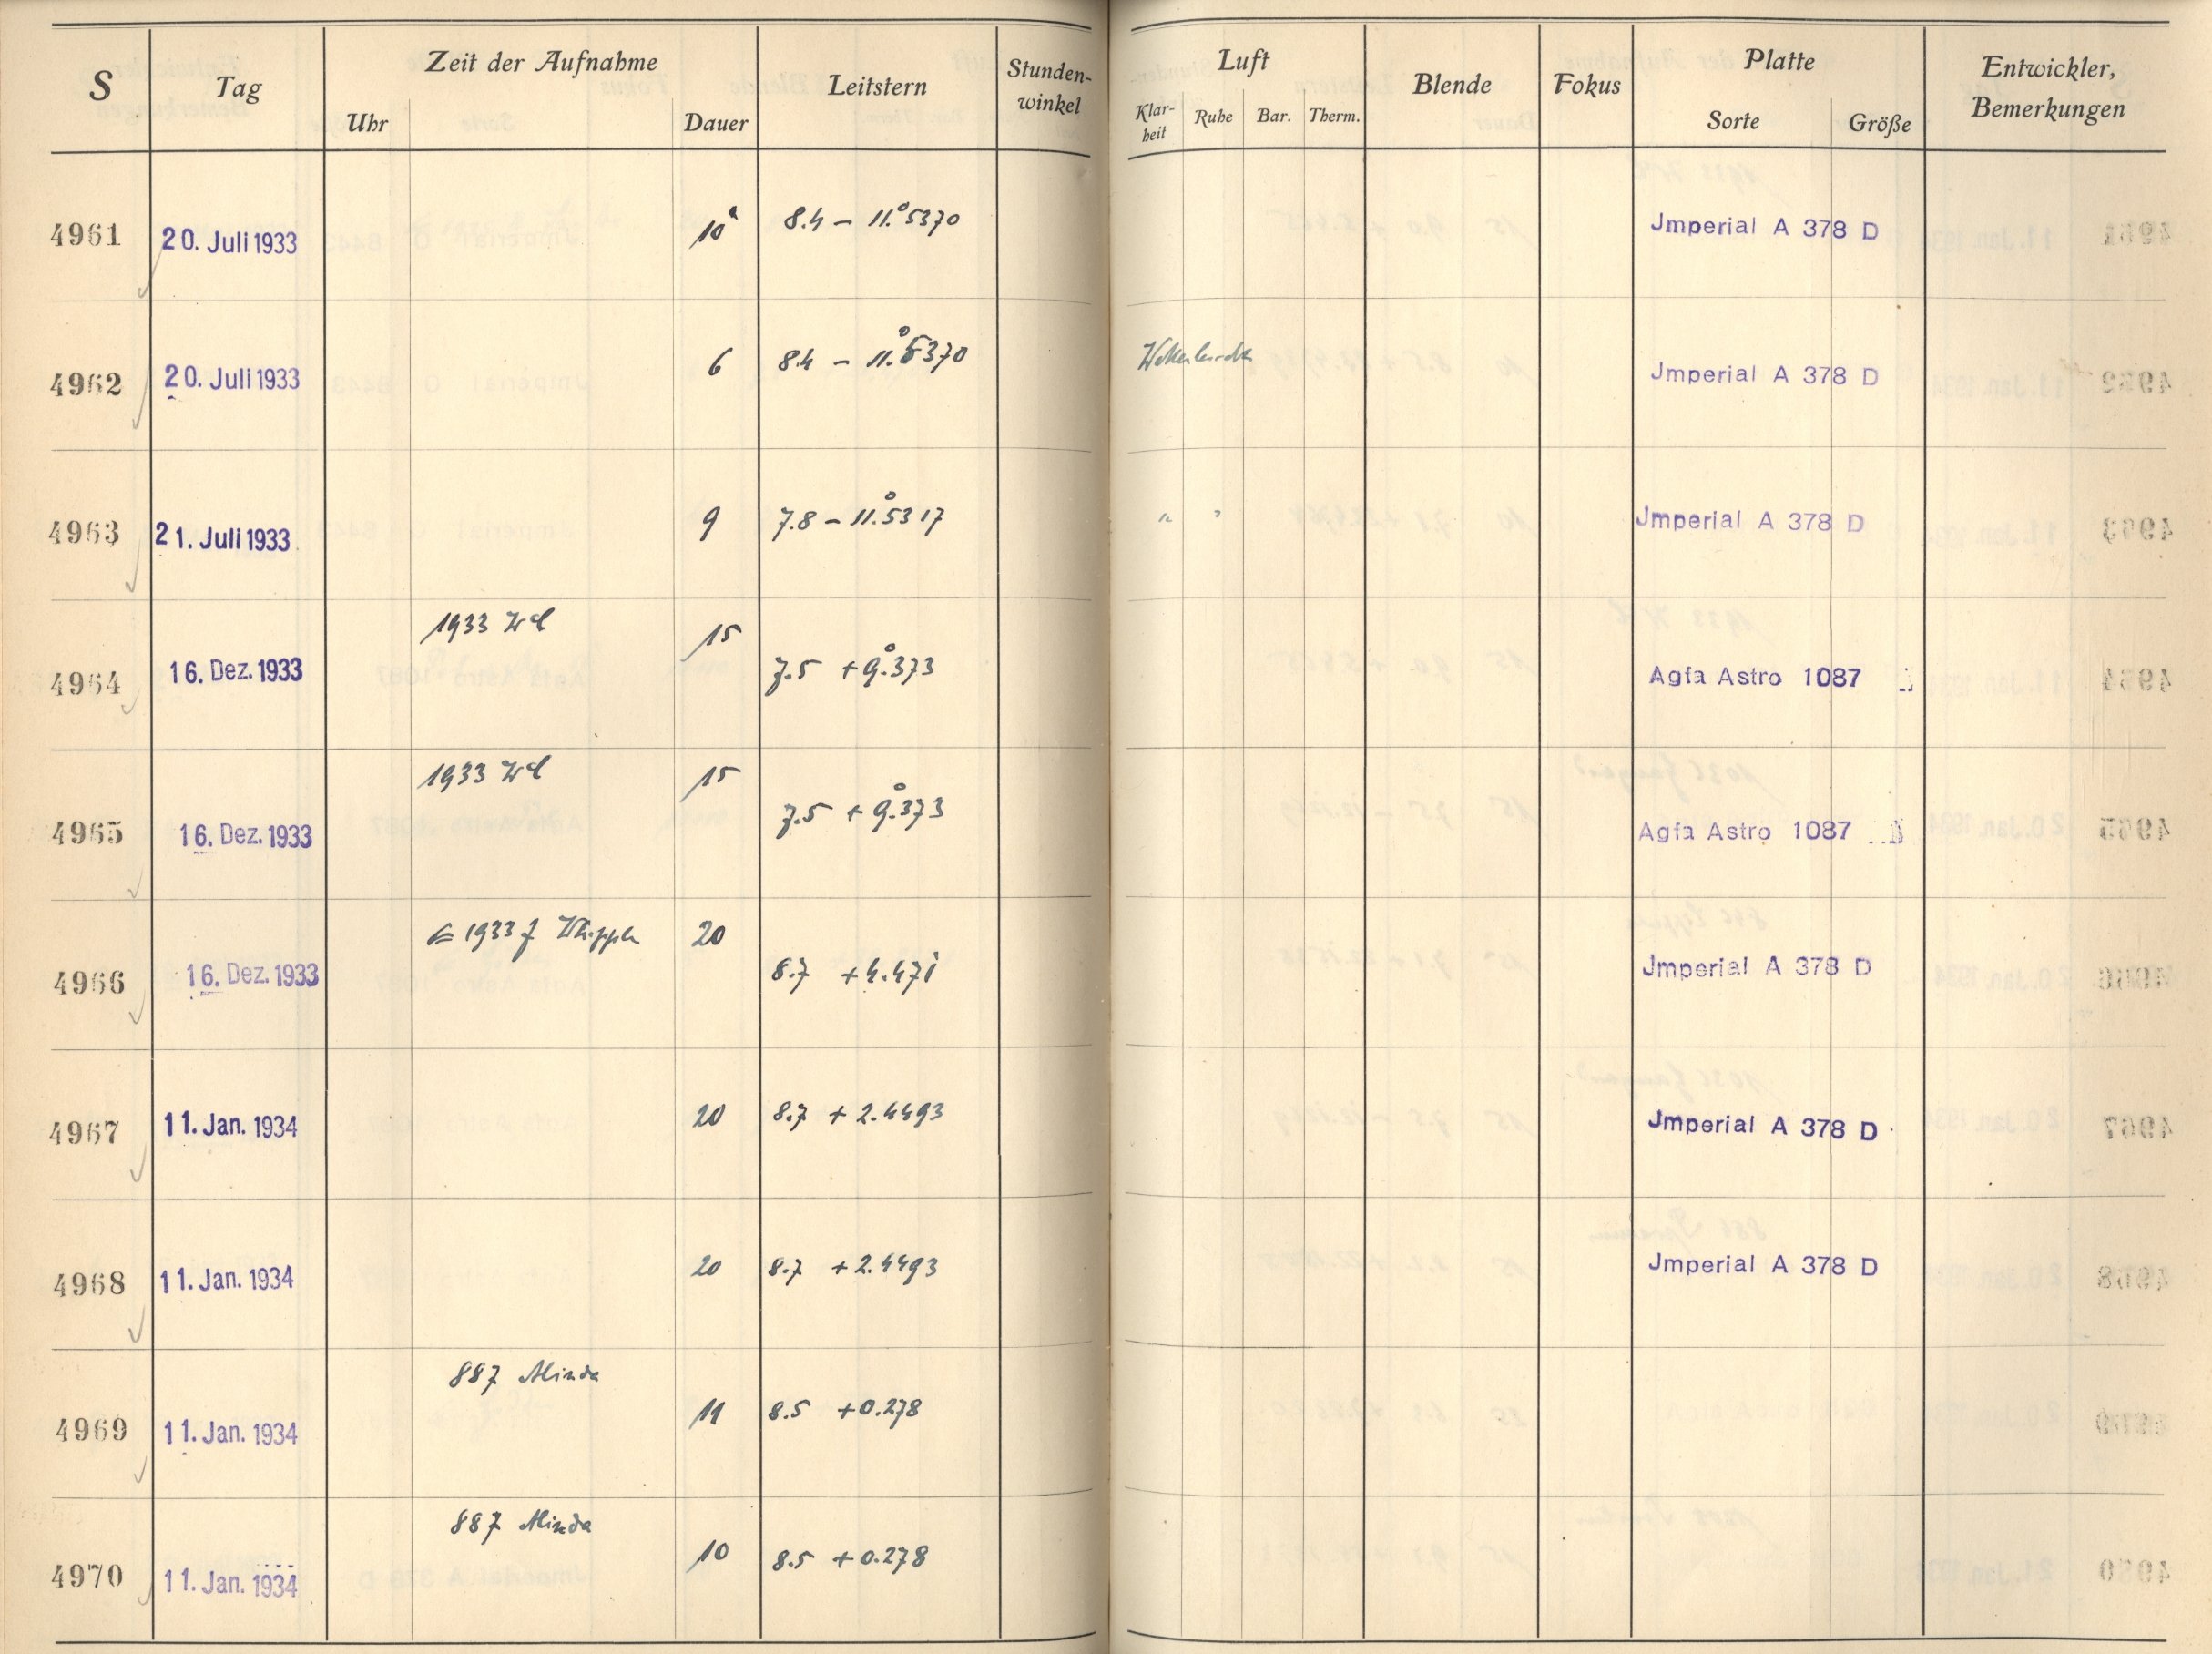 S Tag Zeit der Aufnahme Leitstern Stunden-
winkel Luft Blende Fokus Platte Entwickler,
Bemerkungen
Uhr Dauer Klar-
heit Ruhe Bar. Therm. Sorte Größe
4961 20. Juli 1933 10 8.4 – 11.°5370 Jmperial A 378 D
4962 20. Juli 1933 6 8.4 – 11.°5370 Jmperial A 378 D
4963 21. Juli 1933 9 7.8 – 11.°5317 " " Jmperial A 378 D
1933 15
4964 16. Dez. 1933 7.5 + 9.°373 Agfa Astro 1087
1933 15
4965 16. Dez. 1933 7.5 + 9.°373 Agfa Astro 1087
1933 f Whipple 20
4966 16. Dez. 1933 8.7 + 4.471 Jmperial A 378 D
4967 11. Jan. 1934 20 8.7 + 2.4493 Jmperial A 378 D
4968 11. Jan. 1934 20 8.7 + 2.4493 Jmperial A 378 D
887 Alinda
4969 11. Jan. 1934 11 8.5 + 0.278
887 Alinda
4970 11. Jan. 1934 10 8.5 + 0.278